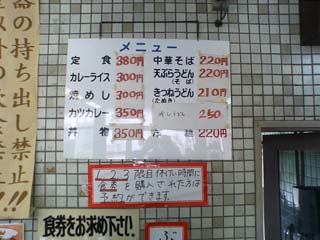 器の持ち出し禁止!!
メニュー
定食 380円
カレーライス 300円
焼めし 300円
カツカレー 350円
丼物 350円
中華そば 220円
天ぷらうどん (そば) 220円
きつねうどん (たぬき) 210円
オムライス 250
220円
1、2、3限目
食券を購入された方は
予約ができます。
食券をお求め下さい!